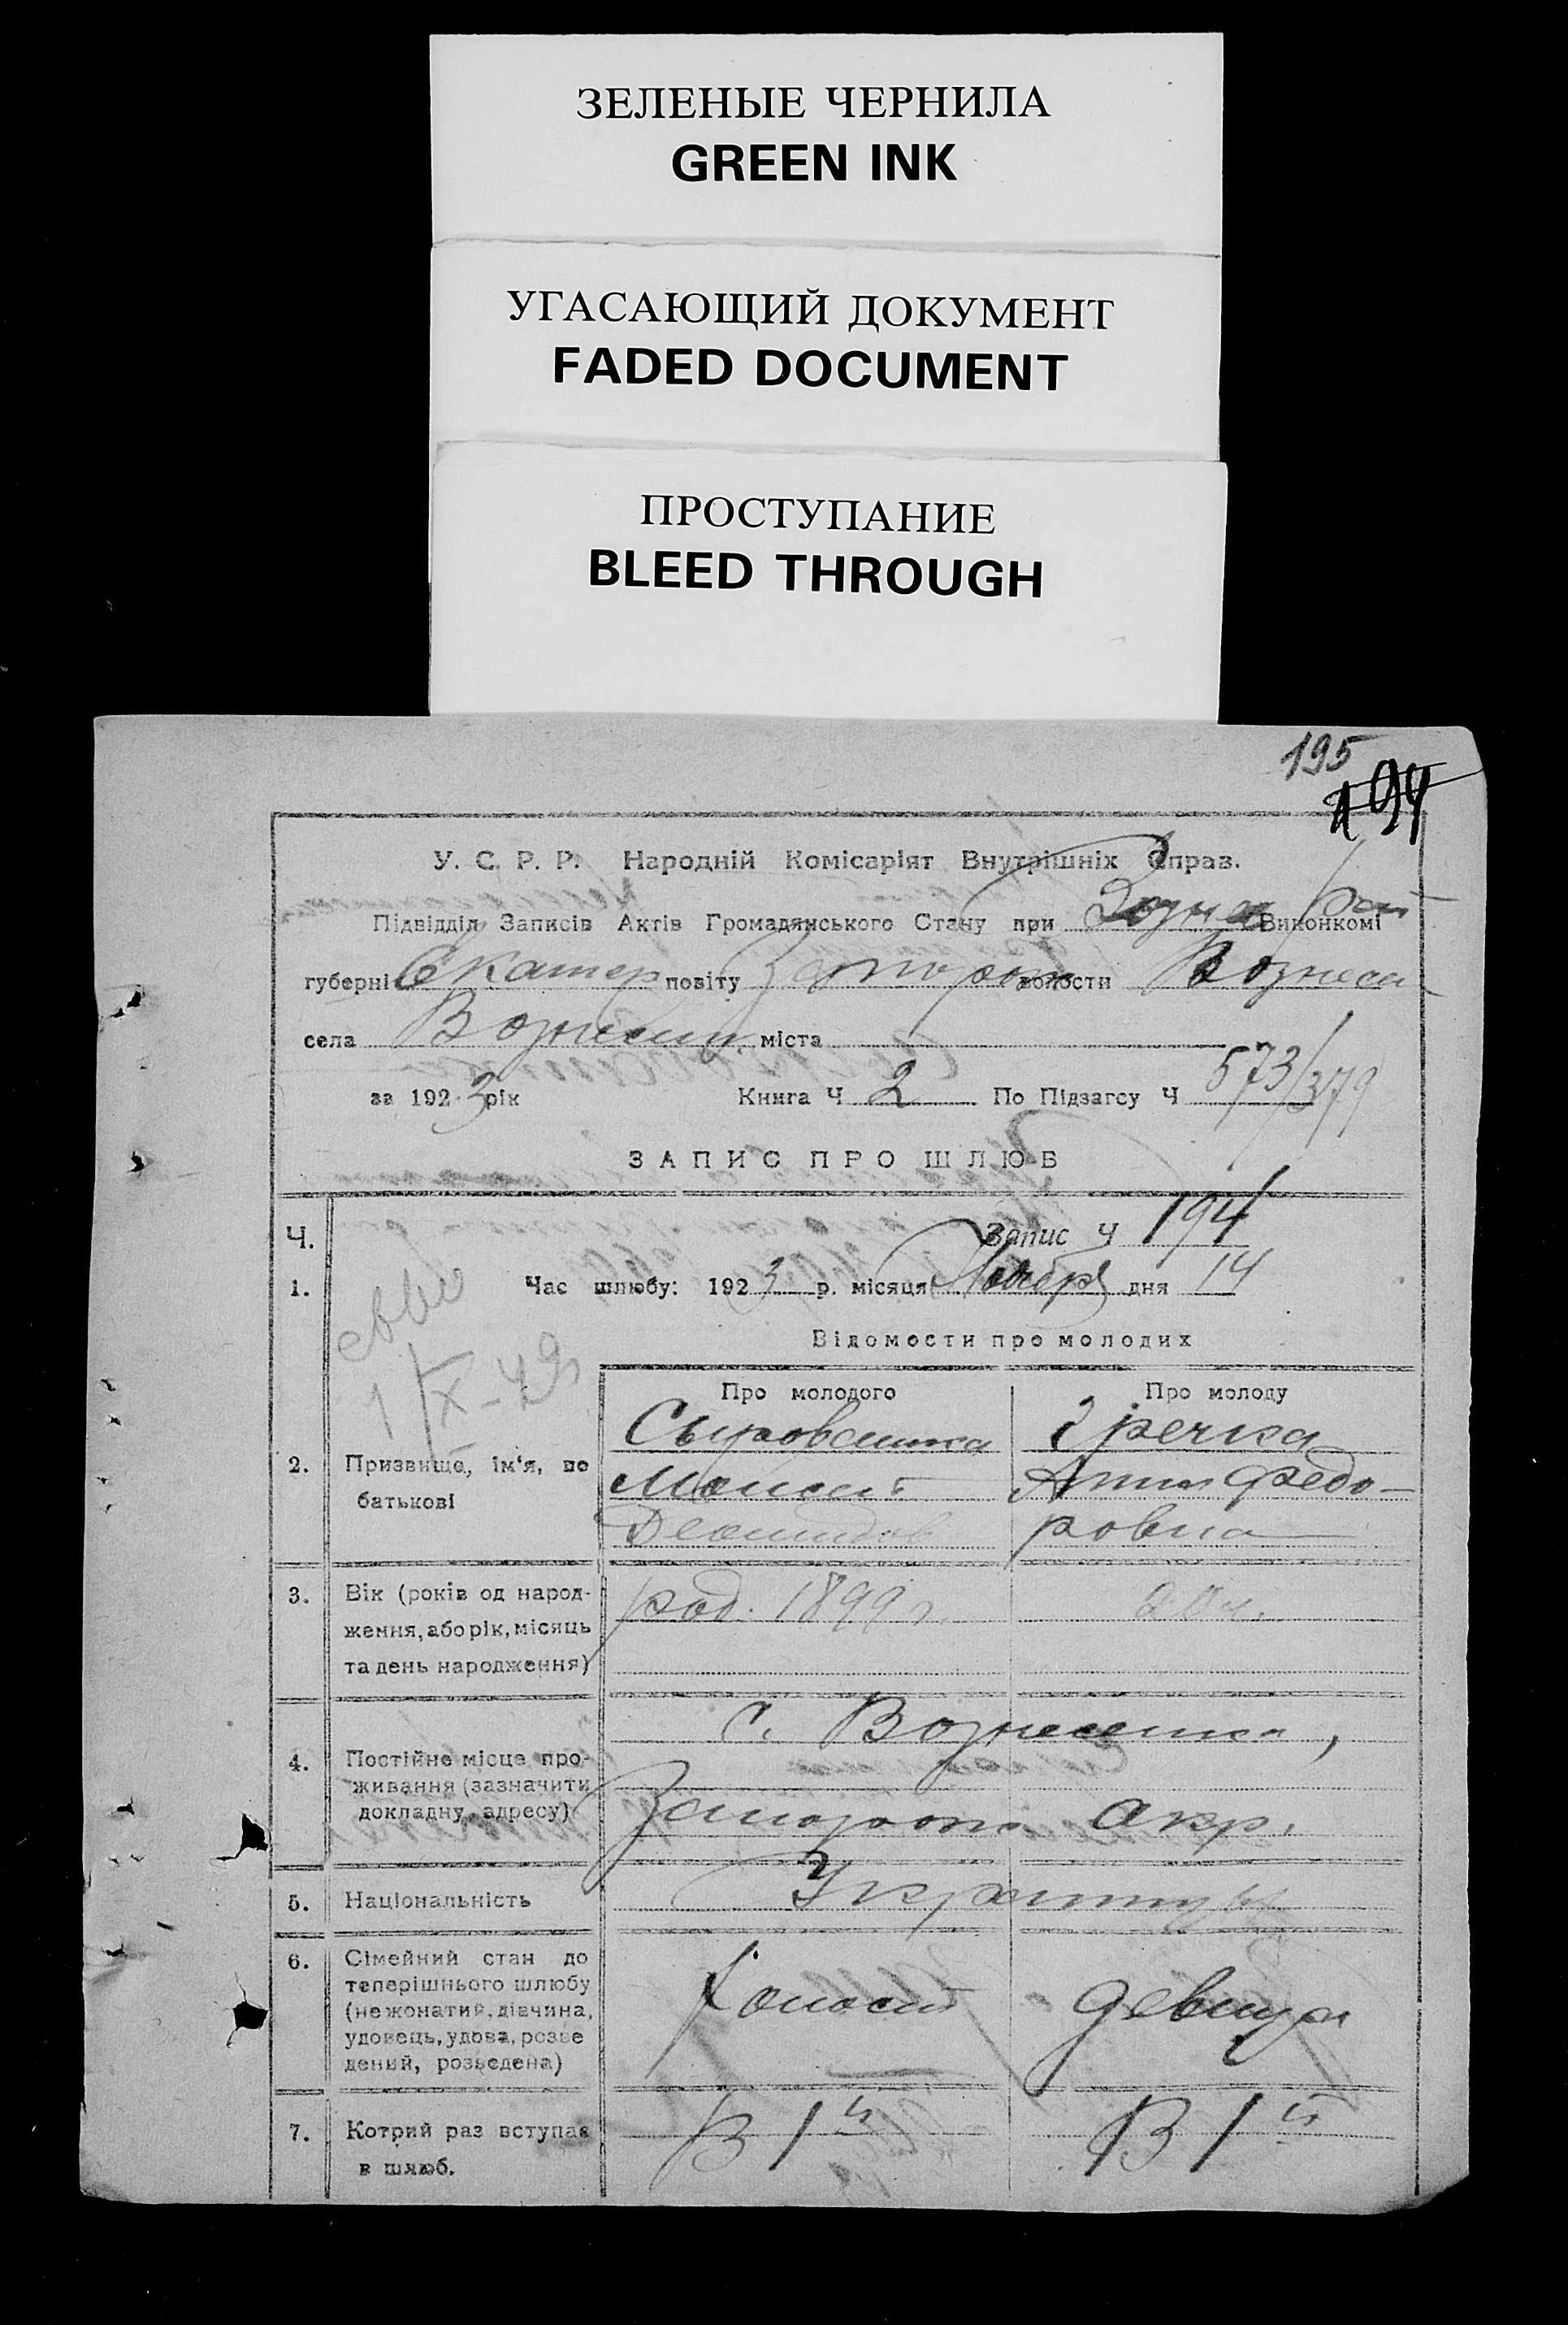 ЗЕЛЕНЫЕ ЧЕРНИЛА
GREEN INK
УГАСАЮЩИЙ ДОКУМЕНТ
FADED DOCUMENT
ПРОСТУПАНИЕ
BLEED THROUGH
195
194
У. С. Р. Р. Народній Комісаріят Внутрішніх Справ.
Підвідділ Записів Актів Громадянського Стану при Виконкомі
губерні Екатер повіту Запорож волости Вознесен
села Вознесен міста
за 1923 рік Книга Ч 2 По Підзагсу Ч 573/379
ЗАПИС ПРО ШЛЮБ
Ч. Запис Ч 194
1. Час шлюбу: 1923 р. місяця Ноября дня 14
Відомости про молодих
Про молодого Про молоду
Сыроватка Гречка
2. Призвище, ім'я, по Анна Федо-
батькові
ровна
3. Вік (років од народ- род. 1899 г. 20 л.
ження, або рік, місяць
та день народження)
с. Вознесенка,
4. Постійне місце про-
живання (зазначити
докладну адресу) Запорож. окр.
5. Національність Украинцы
6. Сімейний стан до
теперішнього шлюбу
(нежонатий, дівчина, Холост девица
удовець, удова, розве
дений, розведена)
7. Котрий раз вступає В 1й В 1й
в шлюб.